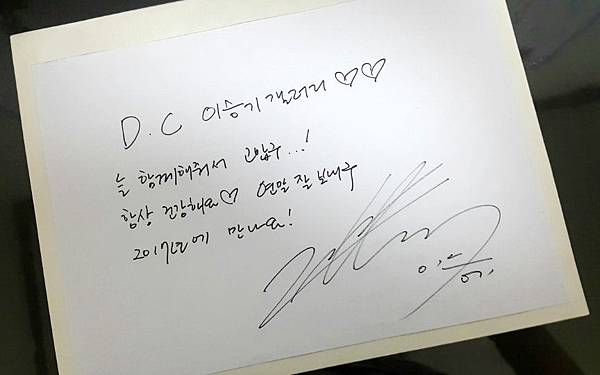 D.C 이승기갤러리♡♡
늘 함께해줘서 고맙구...!
항상 건강해요♡ 연말 잘 보내구
2017년에 만나요!